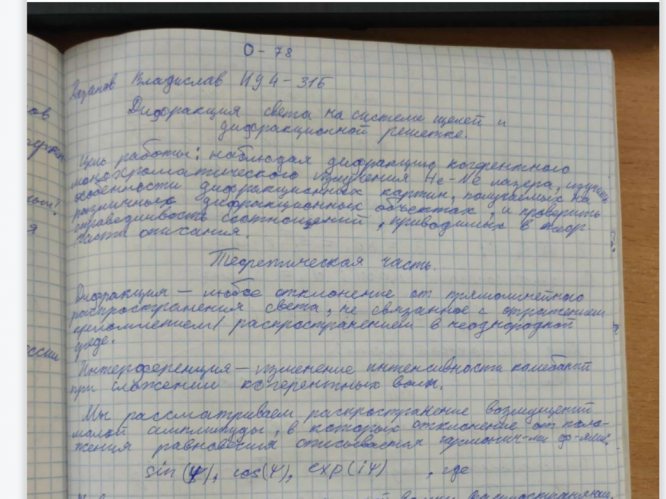 О-78
Казанов Владислав ИУ4-31Б
Дифракция света на системе щелей и
дифракционной решетке.
Цель работы: наблюдая дифракцию когерентного
монохроматического излучения He-Ne лазера, изучить
особенности дифракционных картин, получаемых на
различных дифракционных объектах, и проверить
справедливость соотношений, приводимых в теор.
части описания.
Теоретическая часть.
Дифракция — любое отклонение от прямолинейного
распространения света, не связанное с отражением
преломлением/распространением в неоднородной
среде.
Интерференция — изменение интенсивности колебаний
при сложении когерентных волн.
Мы рассматриваем распространение возмущений
малой амплитуды, в котором отклонение от поло-
жения равновесия описывается гармонич-ми ф-ями.
sin(φ), cos(φ), exp(iφ), где